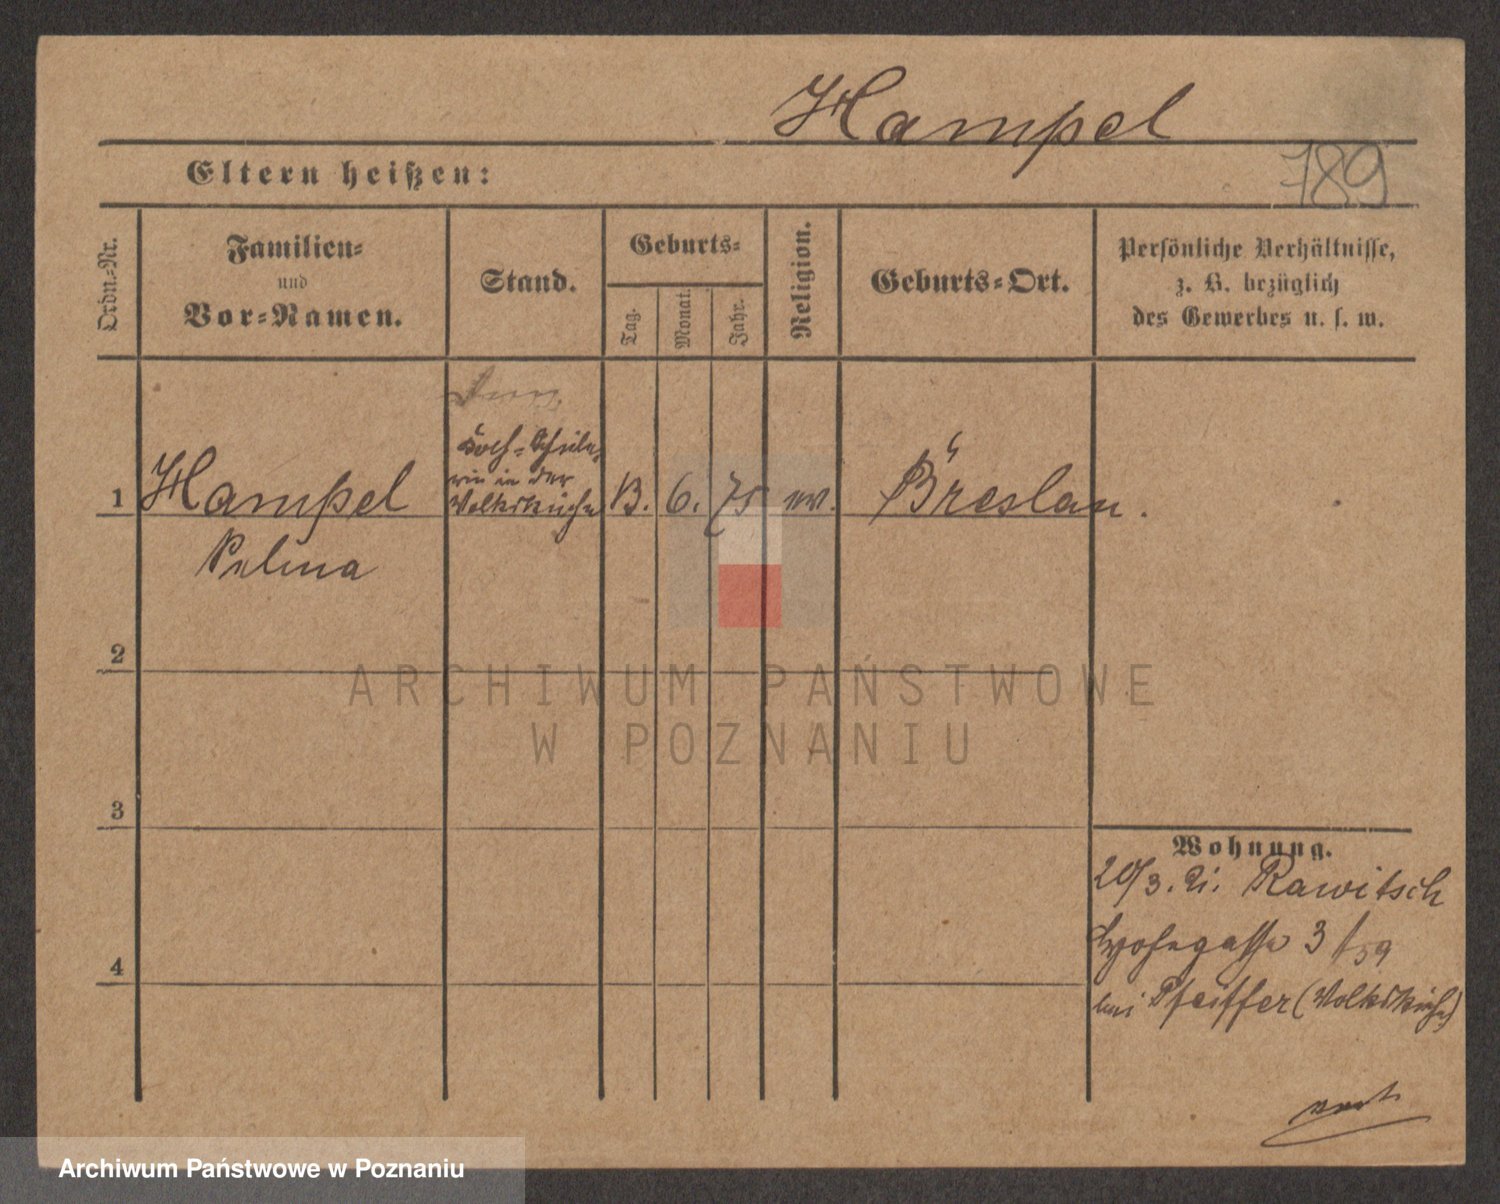 Hampel
789
Eltern heißen:
Ordn.-Nr.
Familien-
und
Vor-Namen.
Stand.
Geburts-
Tag.
Monat.
Jahr.
Religion.
Geburts-Ort.
Persönliche Verhältnisse,
z. B. bezüglich
des Gewerbes u. s. w.
Koch-Schüle-
rin in der
1 Hampel Volksküche 13. 6. 75 ev. Breslau.
2
3
4
Wohnung.
20/3. Rawitsch
3 /59
bei Pfeiffer (Volksküche)
ARCHIWUM PAŃSTWOWE
W POZNANIU
Archiwum Państwowe w Poznaniu